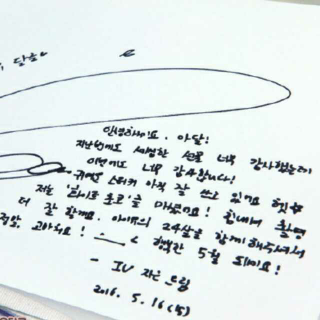 안녕하세요. 아달!
지난번에도 세심한 선물 너무 감사했는데
이번에도 너무 감사합니다!
귀여운 스티커 아직 잘 쓰고 있어요 헷☆
저는 마쳤어요! 힘내서 촬영
더 잘 할게요. 아이유의 24살을 함께해주셔서
정말, 고마워요! 행복한 5월 되세요!
- IU 지은 드림
2016. 5. 16